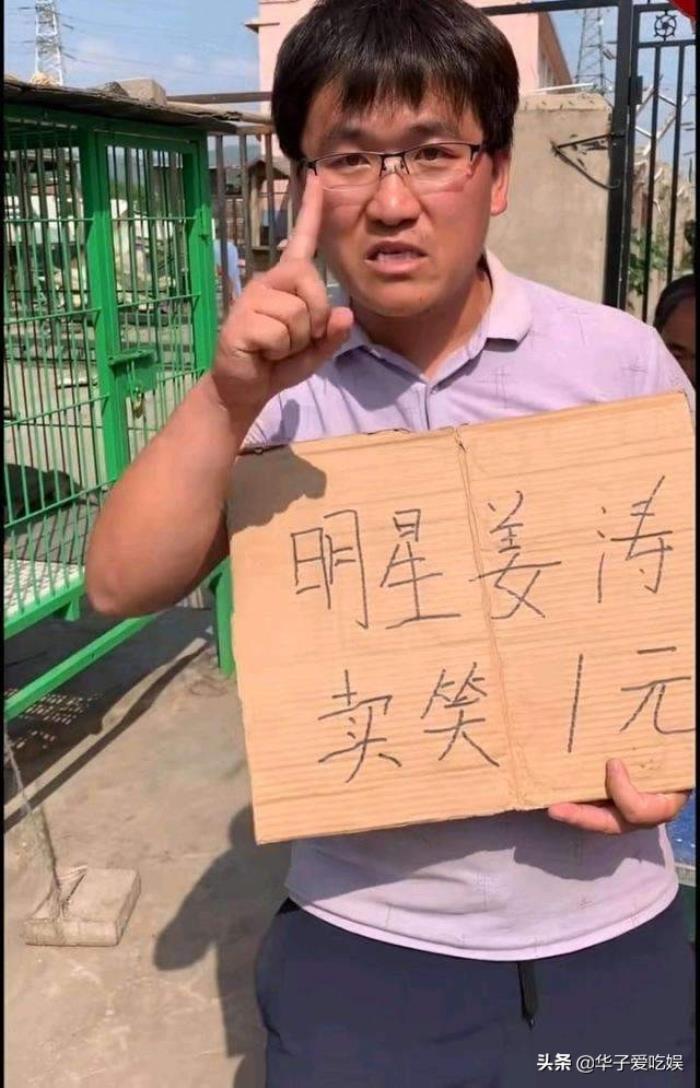 明星姜涛
卖笑1元
头条 @华子爱吃娱